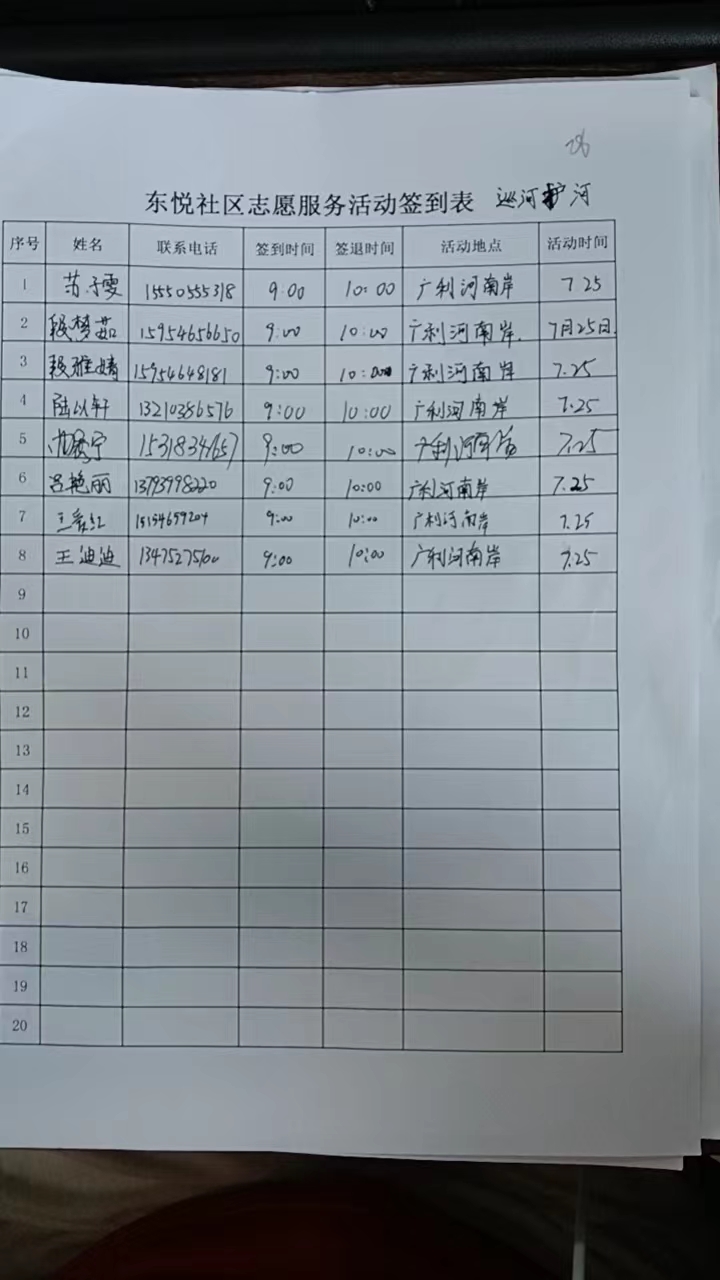 26
东悦社区志愿服务活动签到表 巡河护河
序号 姓名 联系电话 签到时间 签退时间 活动地点 活动时间
1 苏子雯 15550555318 9:00 10:00 广利河南岸 7.25
2 段梦茹 15954656650 9:00 10:00 广利河南岸. 7月25日.
3 段雅婧 15954648181 9:00 10:00 广利河南岸 7.25
4 陆以轩 13210386576 9:00 10:00 广利河南岸 7.25
5 15318341657 9:00 10:00 广利河南岸 7.25
6 吕艳丽 13793998220 9:00 10:00 广利河南岸 7.25
7 15154659204 9:00 10:00 广利河南岸 7.25
8 王迪迪 13475275100 9:00 10:00 广利河南岸 7.25
9
10
11
12
13
14
15
16
17
18
19
20